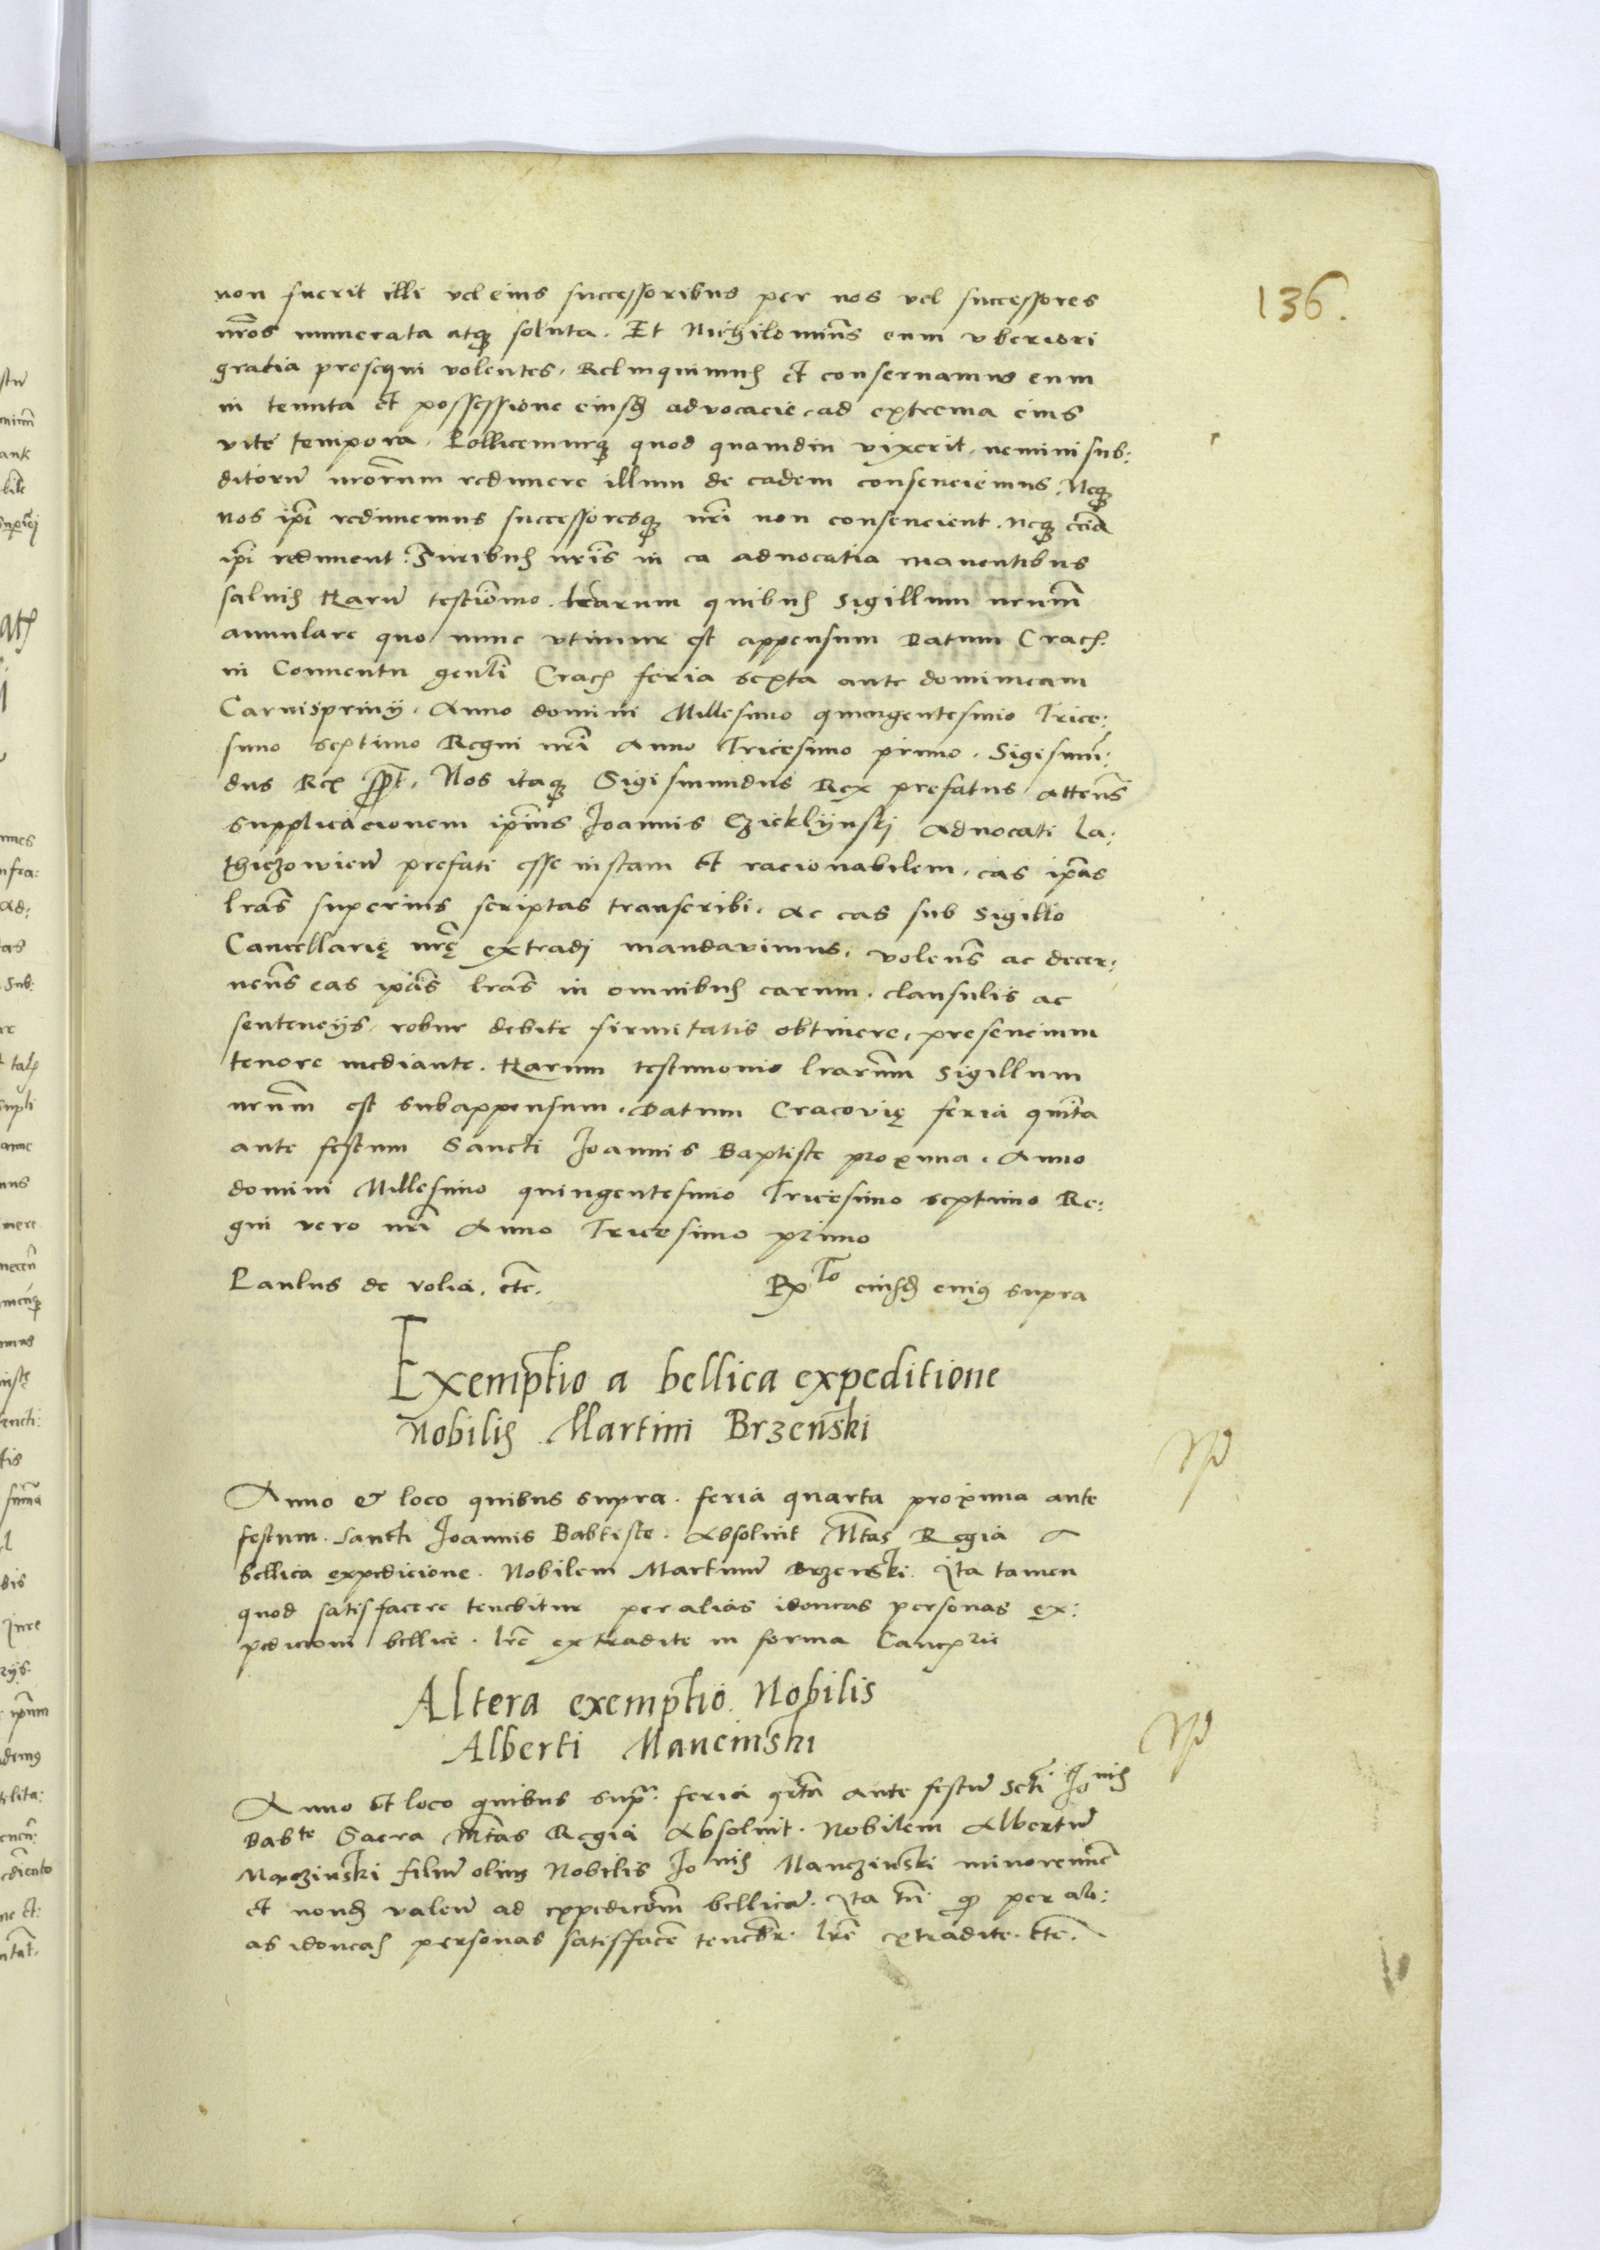 136.
non fuerit illi vel eius successoribus per nos vel successores
nr̃os numerata atq; soluta. Et Nichilominus eum vberiori
gratia prosequi volentes, Relinquimus et conseruamus eum
in tenuta et possessione eiusd advocacie ad extrema eius
vite tempora. Pollicemurq; quod quamdiu vixerit, nemini sub:
ditorũ nr̃orum redimere illum de eadem consenciemus, Neq;
nos ip̃i redimemus successoresq; nr̃i non consencient. neq; eciã
ip̃i rediment. Iuribus nr̃is in ea aduocatia manentibus
saluis Harũ testimo. lr̃arum quibus Sigillum nr̃um
annulare quo nunc vtimur est appensum Datum Crac
in Conuentu gen̄li Crac feria sexta ante dominicam
Carnispriuij. Anno domini Millesimo quingentesimo Trice:
simo septimo Regni nr̃i Anno Tricesimo primo. Sigismũ:
dus Rex sspt. Nos itaq; Sigismundus Rex prefatus, attens̃
supplicacionem ip̃ius Joannis Czieklijnskj Aduocati La:
thiczowieñ prefati esse iustam et racionabilem, eas ip̃as
lr̃as superius scriptas transcribi. Ac eas sub Sigillo
Cancellarię nr̃ę extradj mandauimus, volens̃ ac decer:
nens̃ eas ip̃as lr̃as in omnibus earum. clausulis ac
sentencijs, robur debite firmitatis obtinere, presencium
tenore mediante. Harum testimonio lr̃arum Sigillum
nr̃um est subappensum. Datum Cracovię feria quinta
ante festum Sancti Joannis Baptiste proxima. Anno
domini Millesimo quingentesimo Tricesimo septimo Re:
gni vero nr̃i Anno Tricesimo primo
Paulus de volia. etc. Rto eiusd cuius supra
Exemptio a bellica expeditione
Nobilis Martini Brzenski
Anno et loco quibus supra. feria quarta proxima ante
festum. Sancti Joannis Babtiste. Absoluit Mtas Regia A
bellica expedicione. Nobilem Martinũ Brzenski. Ita tamen
quod satisfacere tenebitur per alias idoneas personas ex:
pedicioni bellice. lr̃e extradite in forma Cancrie
Altera exemptio. Nobilis
Alberti Mancinski
Anno et loco quibus supr. feria qrta ante festũ Scti Jonis
Babte Sacra Mtas Regia Absoluit. Nobilem Albertũ
Manczinski filiũ olim Nobilis Jonis Manczinski minorennẽ
et nond valeñ ad expedicõm bellicã. Ita tñ qd per ali:
as idoneas personas satisfacẽ teneb̃r. lr̃e extradite. etc.